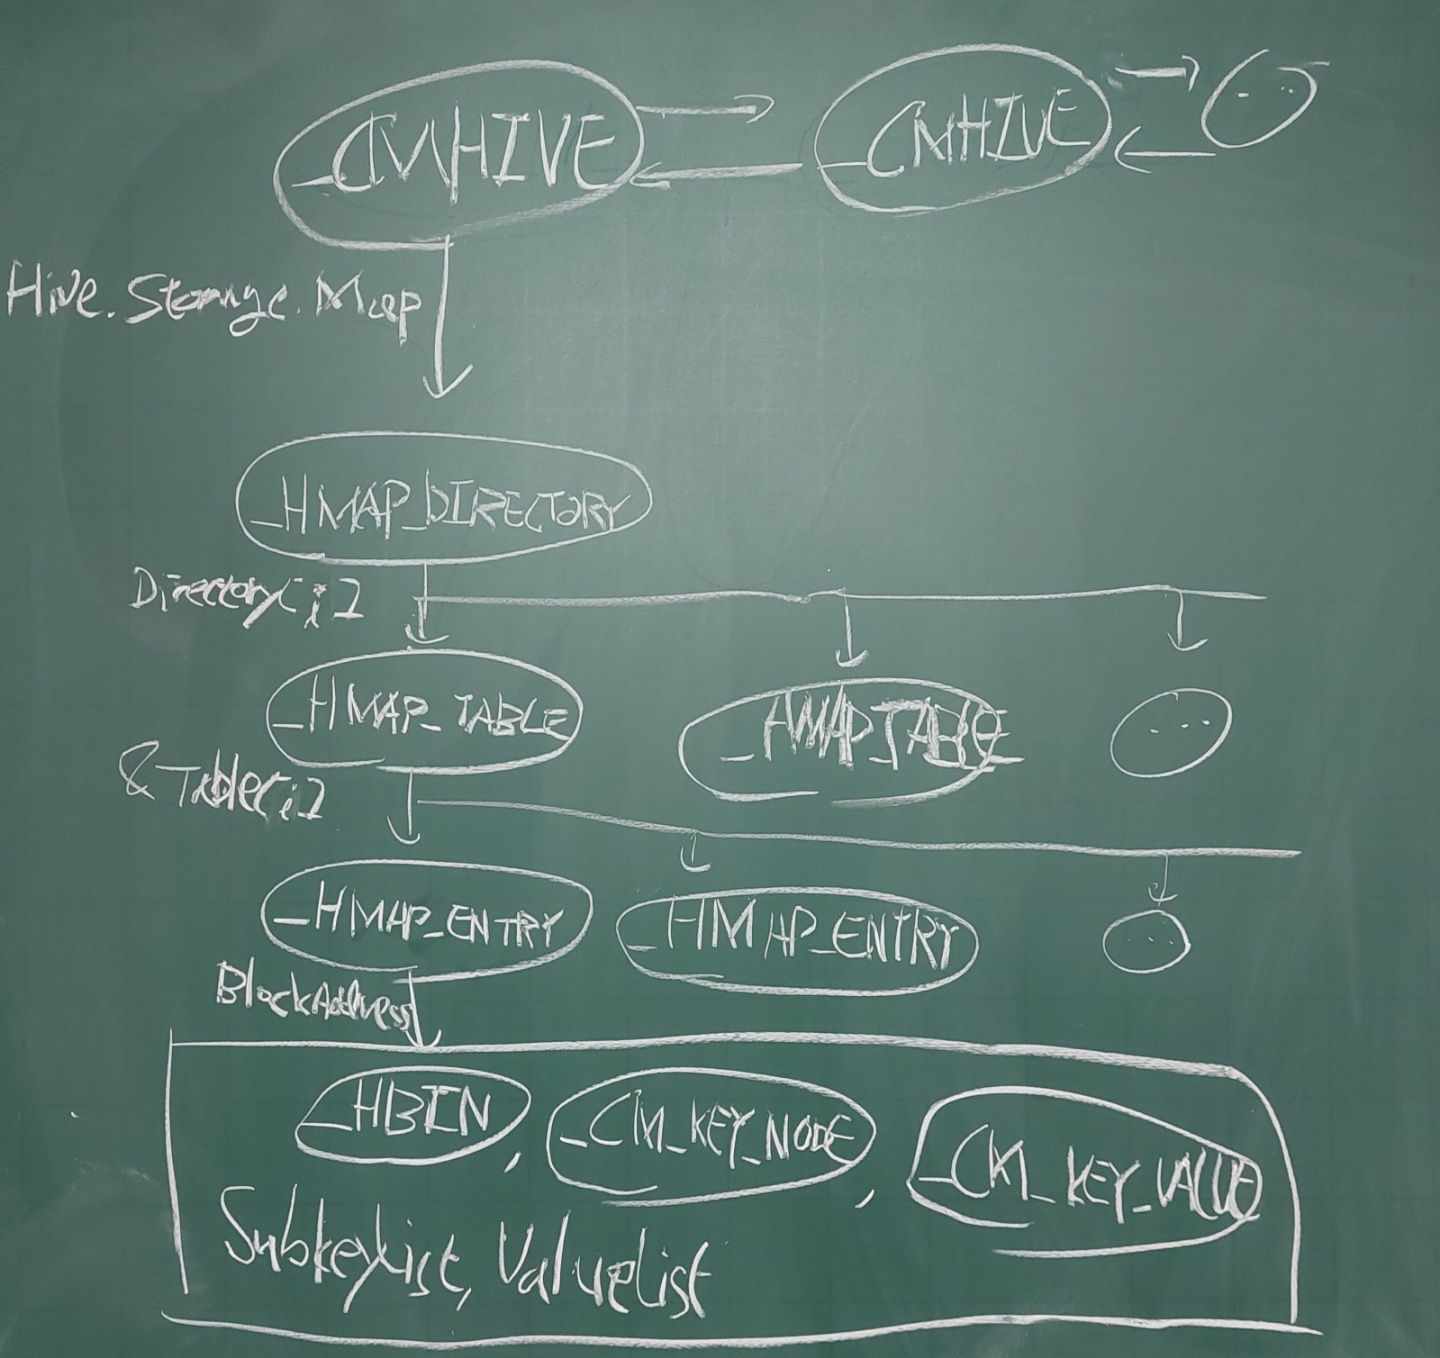 _CMHIVE _CMHIVE ..
Hive.Storage.Map
_HMAP_DIRECTORY
Directory[i]
_HMAP_TABLE _HMAP_TABLE ...
&Table[i]
_HMAP_ENTRY _HMAP_ENTRY ...
BlockAddress
_HBIN, _CM_KEY_NODE, _CM_KEY_VALUE
SubkeyList, ValueList